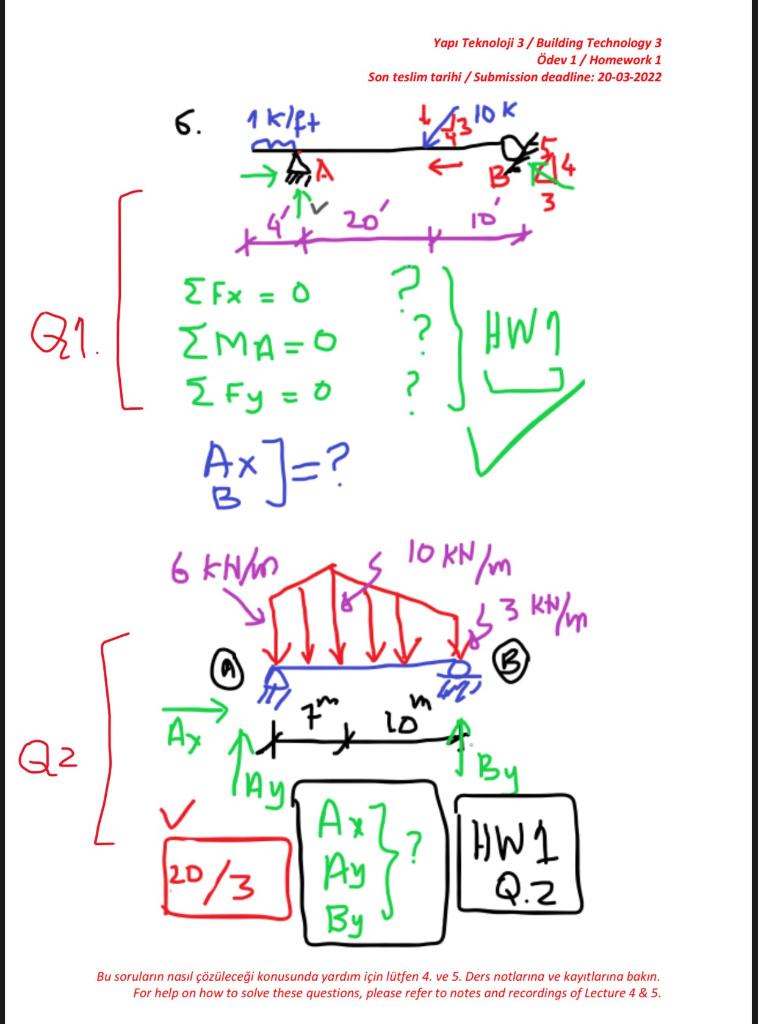 Yapı Teknoloji 3 / Building Technology 3
Ödev 1 / Homework 1
Son teslim tarihi / Submission deadline: 20-03-2022
6.
1 K/ft
10 K
3
4
A
B
5
4
3
4' 20' 10'
Q1.
ΣFx = 0 ?
ΣMA = 0 ?
ΣFy = 0 ?
HW1
Ax
B
] = ?
6 KN/m
10 KN/m
3 KN/m
A
B
7m 10m
Ax
Ay
By
Q2
20/3
Ax
Ay
By
?
HW1
Q.2
Bu soruların nasıl çözüleceği konusunda yardım için lütfen 4. ve 5. Ders notlarına ve kayıtlarına bakın.
For help on how to solve these questions, please refer to notes and recordings of Lecture 4 & 5.